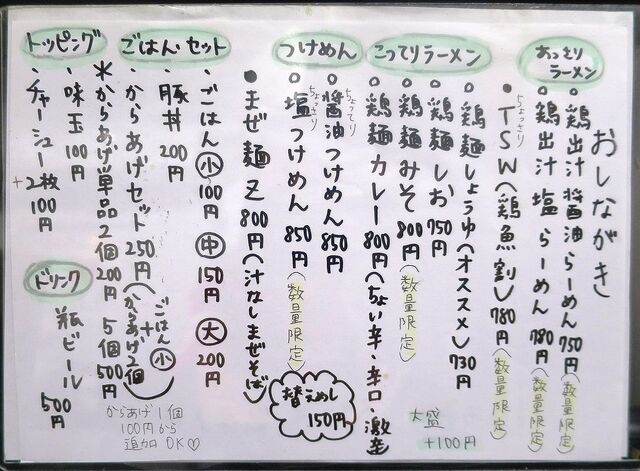 おしながき
あっさりラーメン
○鶏出汁醤油らーめん 750円(数量限定)
○鶏出汁塩らーめん 780円(数量限定)
ちょっさり
●TSW(鶏魚割) 780円(数量限定)
こってりラーメン
○鶏麺しょうゆ(オススメ) 730円
○鶏麺しお 750円
○鶏麺みそ 800円(数量限定)
○鶏麺カレー 800円(ちょい辛・辛口・激辛)
大盛
+100円
つけめん
ちょってり
○醤油つけめん 850円
ちょっさり
○塩つけめん 850円(数量限定)
●まぜ麺Z 800円(汁なしまぜそば)
替えめし
150円
ごはん・セット
・ごはん 小 100円 中 150円 大 200円
・豚丼 200円
・からあげセット 250円(ごはん小+からあげ2個)
*からあげ単品 2個200円 5個500円
からあげ1個
100円から
追加OK♡
トッピング
・味玉 100円
・チャーシュー +2枚 100円
ドリンク
瓶ビール 500円